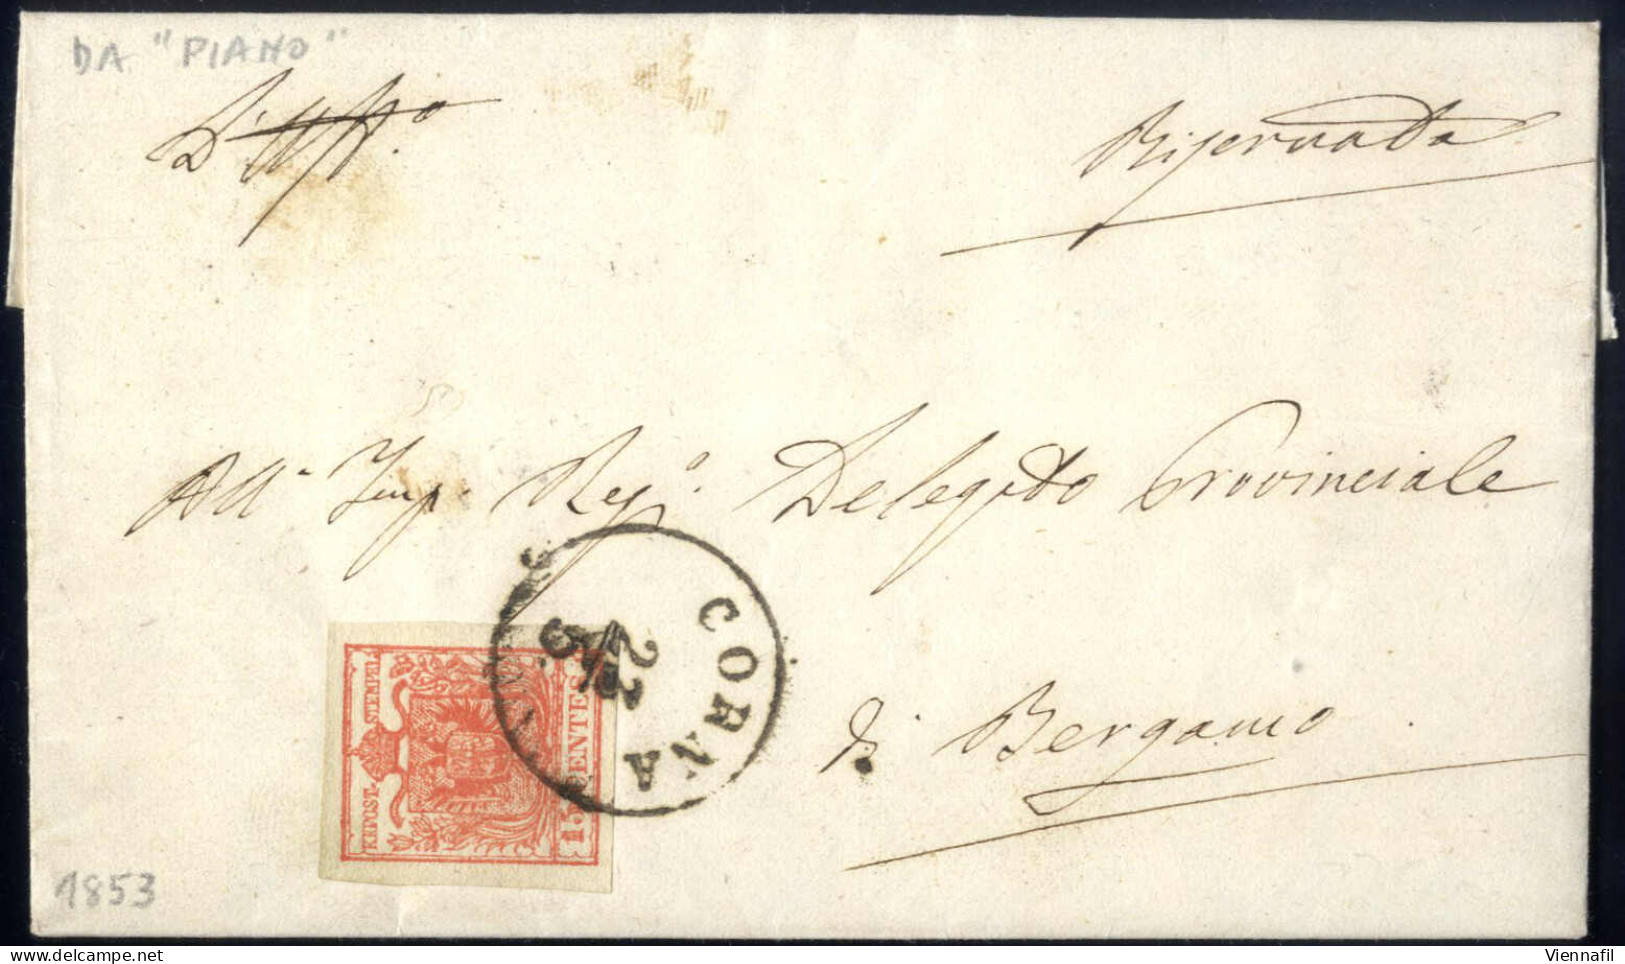 DA "PIANO"
D'Uff.º
Riservata
All' Imp. Reg.º Delegato Provinciale
CORNA
22
5
KKPOST-STEMPEL
15 CENTES
di Bergamo.
1853
Viennafil